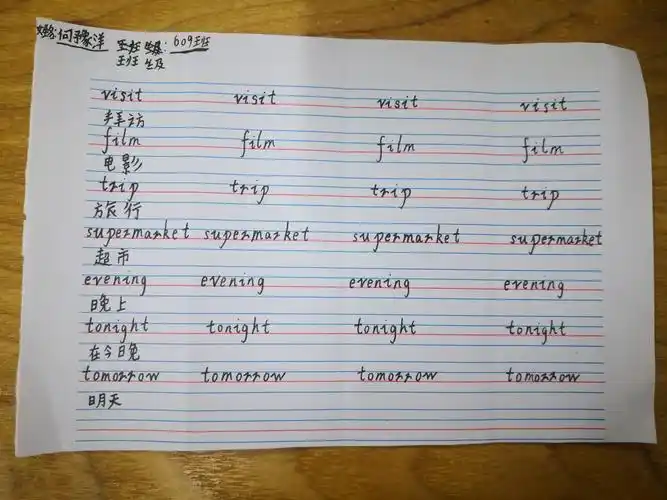 何豫洋 班级: 609班
班级
visit visit visit visit
拜访
film film film film
电影
trip trip trip trip
旅行
supermarket supermarket supermarket supermarket
超市
evening evening evening evening
晚上
tonight tonight tonight tonight
在今晚
tomorrow tomorrow tomorrow tomorrow
明天